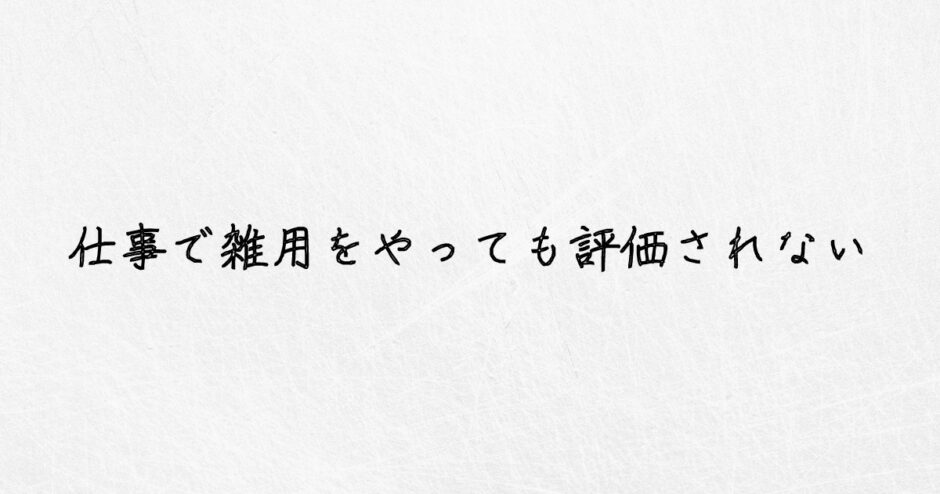 仕事で雑用をやっても評価されない